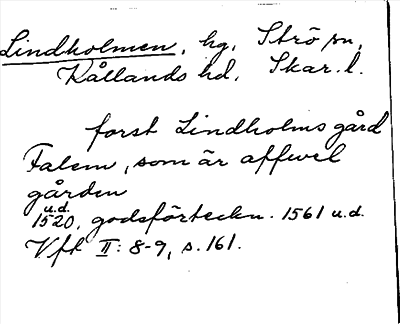 Lindholmen, hg, Strö sn,
Kållands hd, Skar. l.
forst Lindholms gård
Falem, som är affwel
gården
u.d.
1520, godsförteckn. 1561 u.d.
Vft II: 8-9, s. 161.